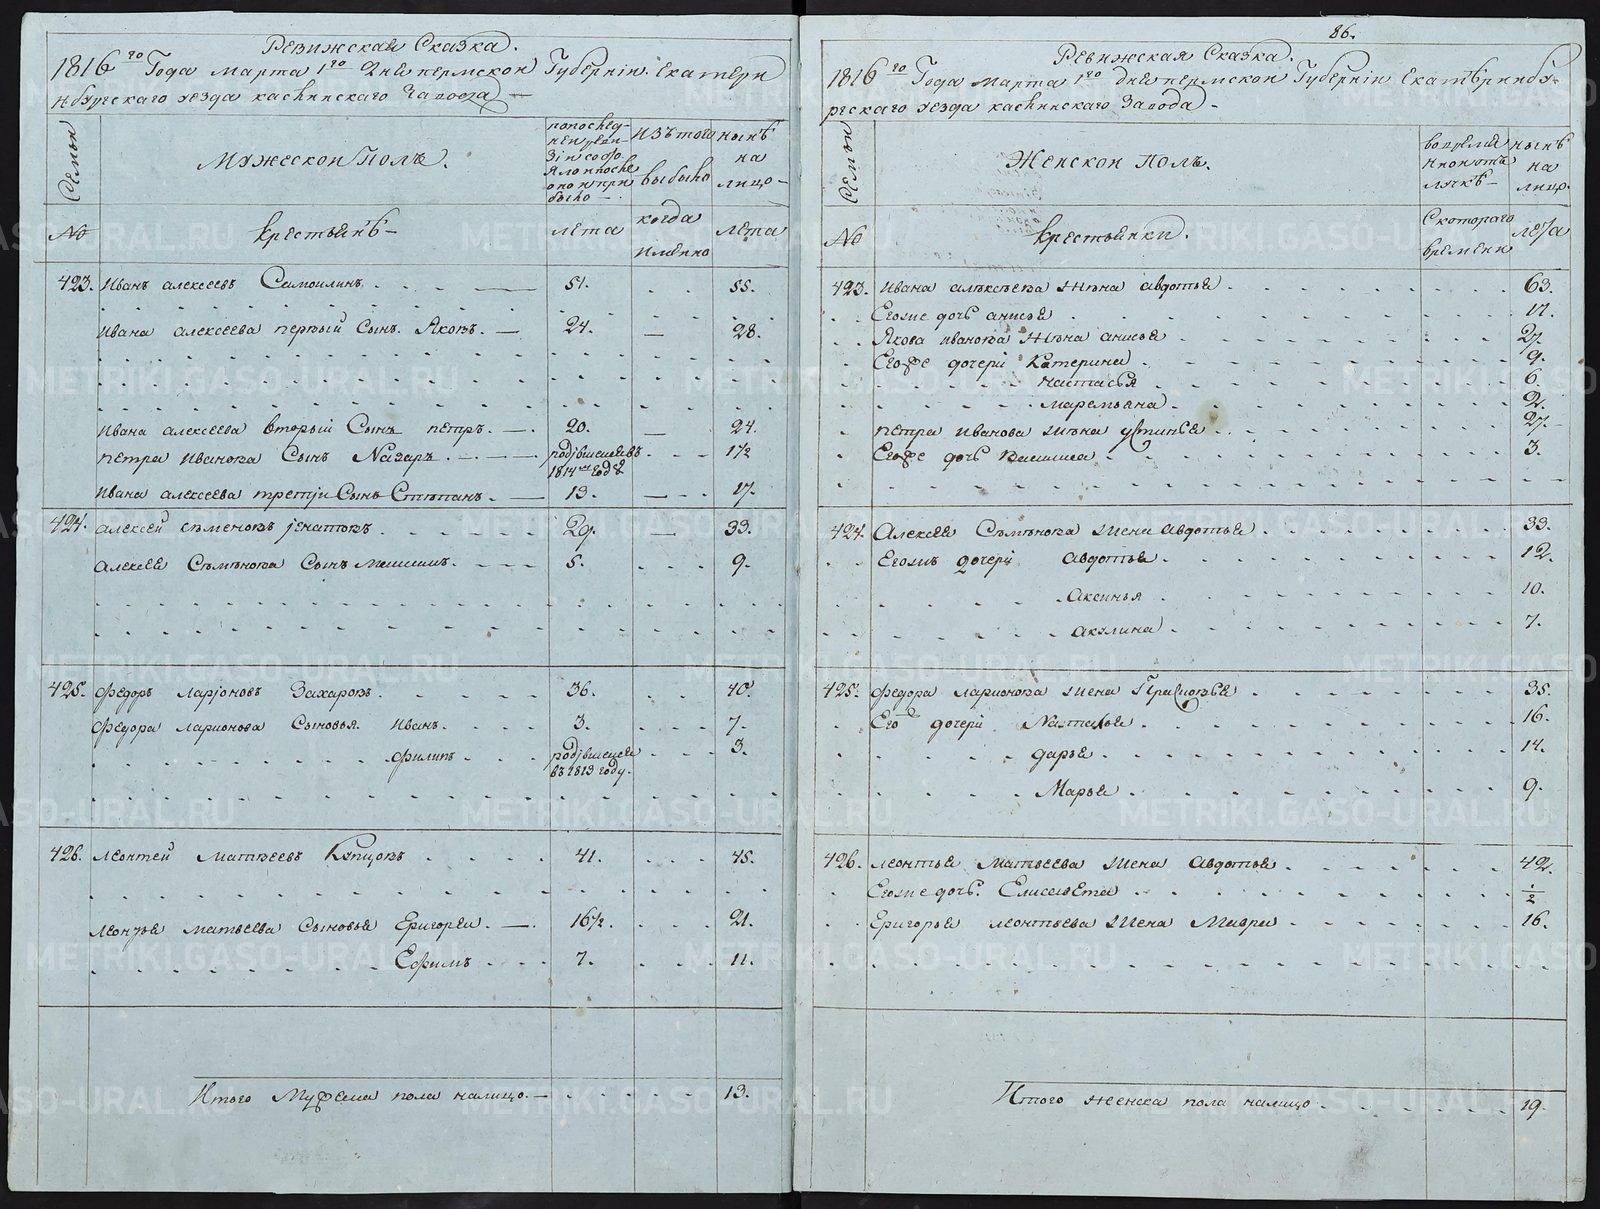 Ревижская Сказка.
1816го Года марта 1го Дня пермской Губернїи Екатери
нбургскаго уезда каслинскаго Завода
Семьи
Мужескои Полъ.
попослед-
неи реви-
зіи состо
яло и после
оно и при
было
изъ того
выбыло
нынѣ
на
лицо
№
крестьянъ
лета
когда
имянно
лета
423. Иванъ алексеевъ Самоилинъ. 51. 55.
Ивана алексеева первый Сынъ Яковъ. 24. 28.
Ивана алексеева вторый Сынъ петръ. 20. 24.
петра Иванова Сынъ Назаръ. родјвшеися въ 1½
1814м годѣ
Ивана алексеева третји Сынъ Степанъ. 13. 17.
424. алексей семеновъ јгнатовъ 29. 33.
алексея Семѣнова Сынъ максимъ. 5. 9.
425. федоръ ларјоновъ Захаровъ. 36. 40.
Федора ларионова Сыновья Иванъ. 3. 7.
филипъ родјвшеися 3.
въ 1813 году.
426. леонтей матвеевъ Купцовъ 41. 45.
леонтья матвеева Сыновья Григореи. 16½. 21.
Ефимъ 7. 11.
Итого Мужеска пола налицо. 13.
86.
Ревижская Сказка.
1816го Года марта 1го дня пермскои Губернїи Екатѣринбу-
ргскаго уезда каслинскаго Завода
Семьи
Женскои полъ.
во времян
нои отъ
лучкѣ
нынѣ
на
лицо.
№
крестьянки.
Скотораго
времени
лета
423. Ивана алѣксѣева жѣна авдотья 63.
Егоже дочь анисья 17.
Якова иванова жѣна анисья 27.
Егоже дочери Катерина 9.
настасья 6.
маремьяна 2.
петра Иванова жѣна устинья 27.
Егоже дочь 3.
424. Алексея Семѣнова жена авдотья 33.
Егожъ дочери авдотья. 12.
Аксинья 10.
акулина 7.
425. федора ларионова жена Прасковья 35.
Его дочери Настасья 16.
дарья 14.
Марья 9.
426. леонтья матвеева жена Авдотья 42.
Егоже дочь. Елисавета ½
Григорья леонтьева жена Мавра 16.
Итого женска пола налицо 19.